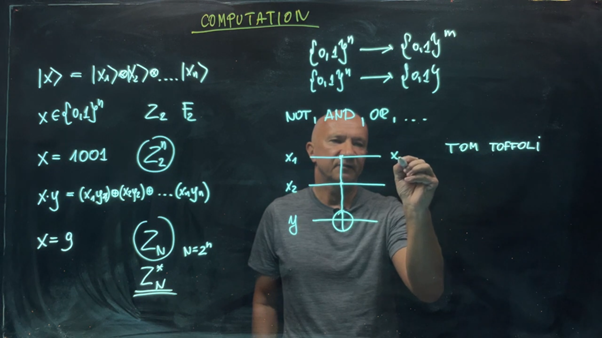 COMPUTATION
|x⟩ = |x₁⟩⊗|x₂⟩⊗ .... |xₙ⟩
x ∈ {0,1}ⁿ Z₂ F₂
x = 1001 Z₂ⁿ
x·y = (x₁y₁)⊕(x₂y₂)⊕ ... (xₙyₙ)
x = 9 Z_N N=2ⁿ
Z_N^×
{0,1}ⁿ → {0,1}ᵐ
{0,1}ⁿ → {0,1}
NOT, AND, OR, ...
x₁ x
x₂
y
TOM TOFFOLI